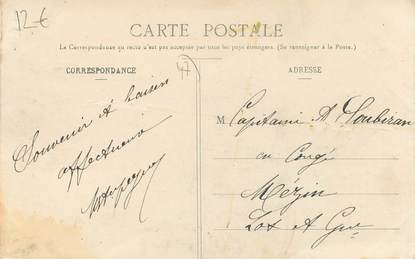 12 €
CARTE POSTALE
La Correspondance au recto n'est pas acceptée par tous les pays étrangers. (Se renseigner à la Poste.)
CORRESPONDANCE
47
ADRESSE
Souvenir et baisers
affectueux
M Capitaine A Soubiran
en Congé
Mézin
Lot et Gne